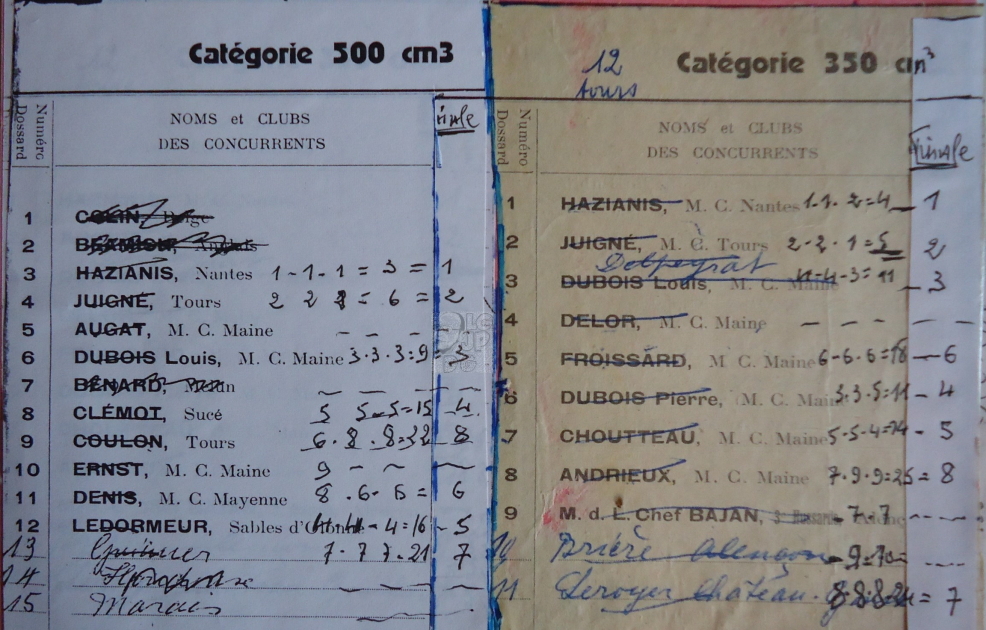 Catégorie 500 cm3
Numéro Dossard
NOMS et CLUBS
DES CONCURRENTS
1 COLIN, Belge
2
3 HAZIANIS, Nantes 1-1-1 = 3 = 1
4 JUIGNÉ, Tours 2 2 2 = 6 = 2
5 AUGAT, M. C. Maine — — —
6 DUBOIS Louis, M. C. Maine 3.3.3=9= 3
7 BÉNARD, — — —
8 CLÉMOT, Sucé 5 5-5=15 4
9 COULON, Tours 6.8.8=22 8
10 ERNST, M. C. Maine 9 - -
11 DENIS, M. C. Mayenne 8.6.6= 6
12 LEDORMEUR, Sables d'Olonne 4-4=16 - 5
13 7.7 7.21 7
14
15 Marais
Catégorie 350 cm3
12 tours
Numéro Dossard
NOMS et CLUBS
DES CONCURRENTS
Finale
1 HAZIANIS, M. C. Nantes 1.1.2=4 — 1
2 JUIGNÉ, M. C. Tours 2-2-1=5 2
Delpeyrat
3 DUBOIS Louis, M. C. Maine 4-4-3=11 — 3
4 DELOR, M. C. Maine — — — —
5 FROISSARD, M. C. Maine 6-6-6=18 — 6
6 DUBOIS Pierre, M. C. Maine 3.3.5=11 - 4
7 CHOUTTEAU, M. C. Maine 5-5-4=14 - 5
8 ANDRIEUX, M. C. Maine 7.9.9=25 = 8
9 M. d. L. Chef BAJAN, - 7-7 ----
10 Brière Alençon - 9-10- ----
11 Leroyer Château. 8.8.8=24 = 7